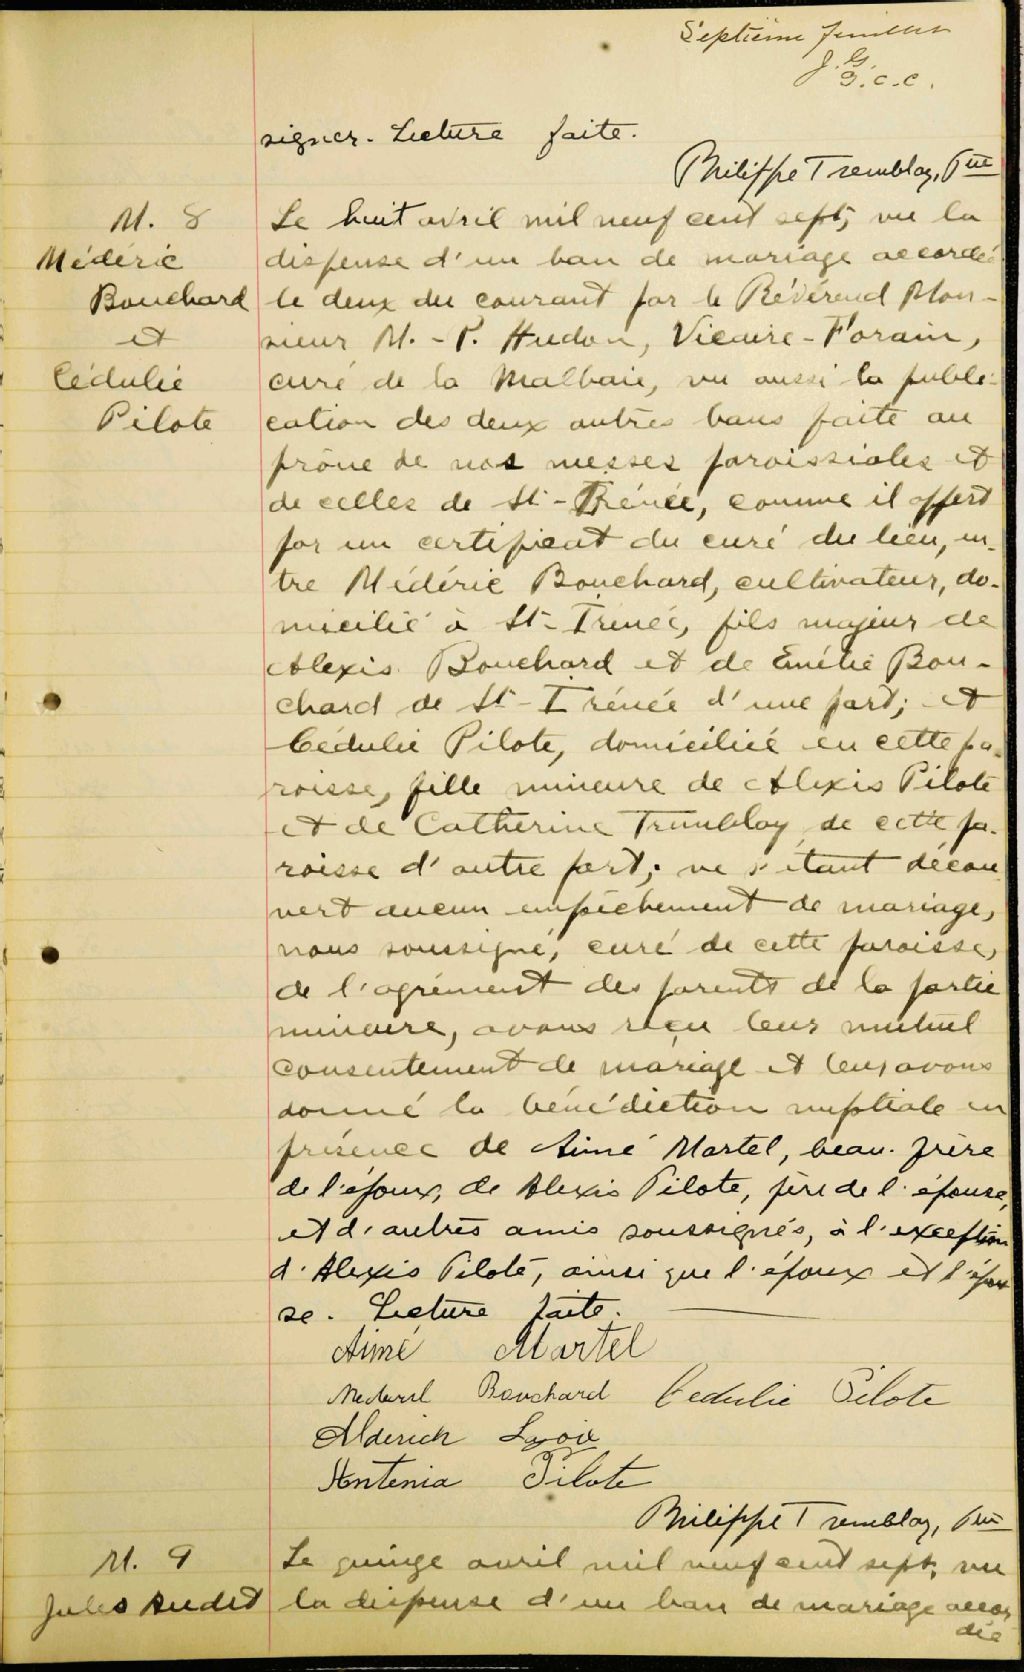 Septième feuillet
J. G.
G.C.C.
signer. Lecture faite.
Philippe Tremblay, Ptre
M. 8
Médéric
Bouchard
et
Cédulie
Pilote
Le huit avril mil neuf cent sept, vu la
dispense d'un ban de mariage accordée
le deux du courant par le Révérend Mon-
sieur M.-P. Hudon, Vicaire-Forain,
curé de la Malbaie, vu aussi la publi-
cation des deux autres bans faite au
prône de nos messes paroissiales et
de celles de St-Irénée, comme il appert
par un certificat du curé du lieu, en-
tre Médéric Bouchard, cultivateur, do-
micilié à St-Irénée, fils majeur de
Alexis Bouchard et de Emélie Bou-
chard de St-Irénée d'une part; et
Cédulie Pilote, domiciliée en cette pa-
roisse, fille mineure de Alexis Pilote
et de Catherine Tremblay de cette pa-
roisse d'autre part; ne s'étant décou
vert aucun empêchement de mariage,
nous soussigné, curé de cette paroisse,
de l'agrément des parents de la partie
mineure, avons reçu leur mutuel
consentement de mariage et leur avons
donné la bénédiction nuptiale en
présence de Aimé Martel, beau-frère
de l'époux, de Alexis Pilote, père de l'épouse,
et d'autres amis soussignés, à l'exception
d'Alexis Pilote, ainsi que l'époux et l'épou
se. Lecture faite.
Aimé Martel
Bouchard Cedulie Pilote
Alderich
Antenia Pilote
Philippe Tremblay, Ptre
M. 9
Jules Audet
Le quinze avril mil neuf cent sept, vu
la dispense d'un ban de mariage accor
dée